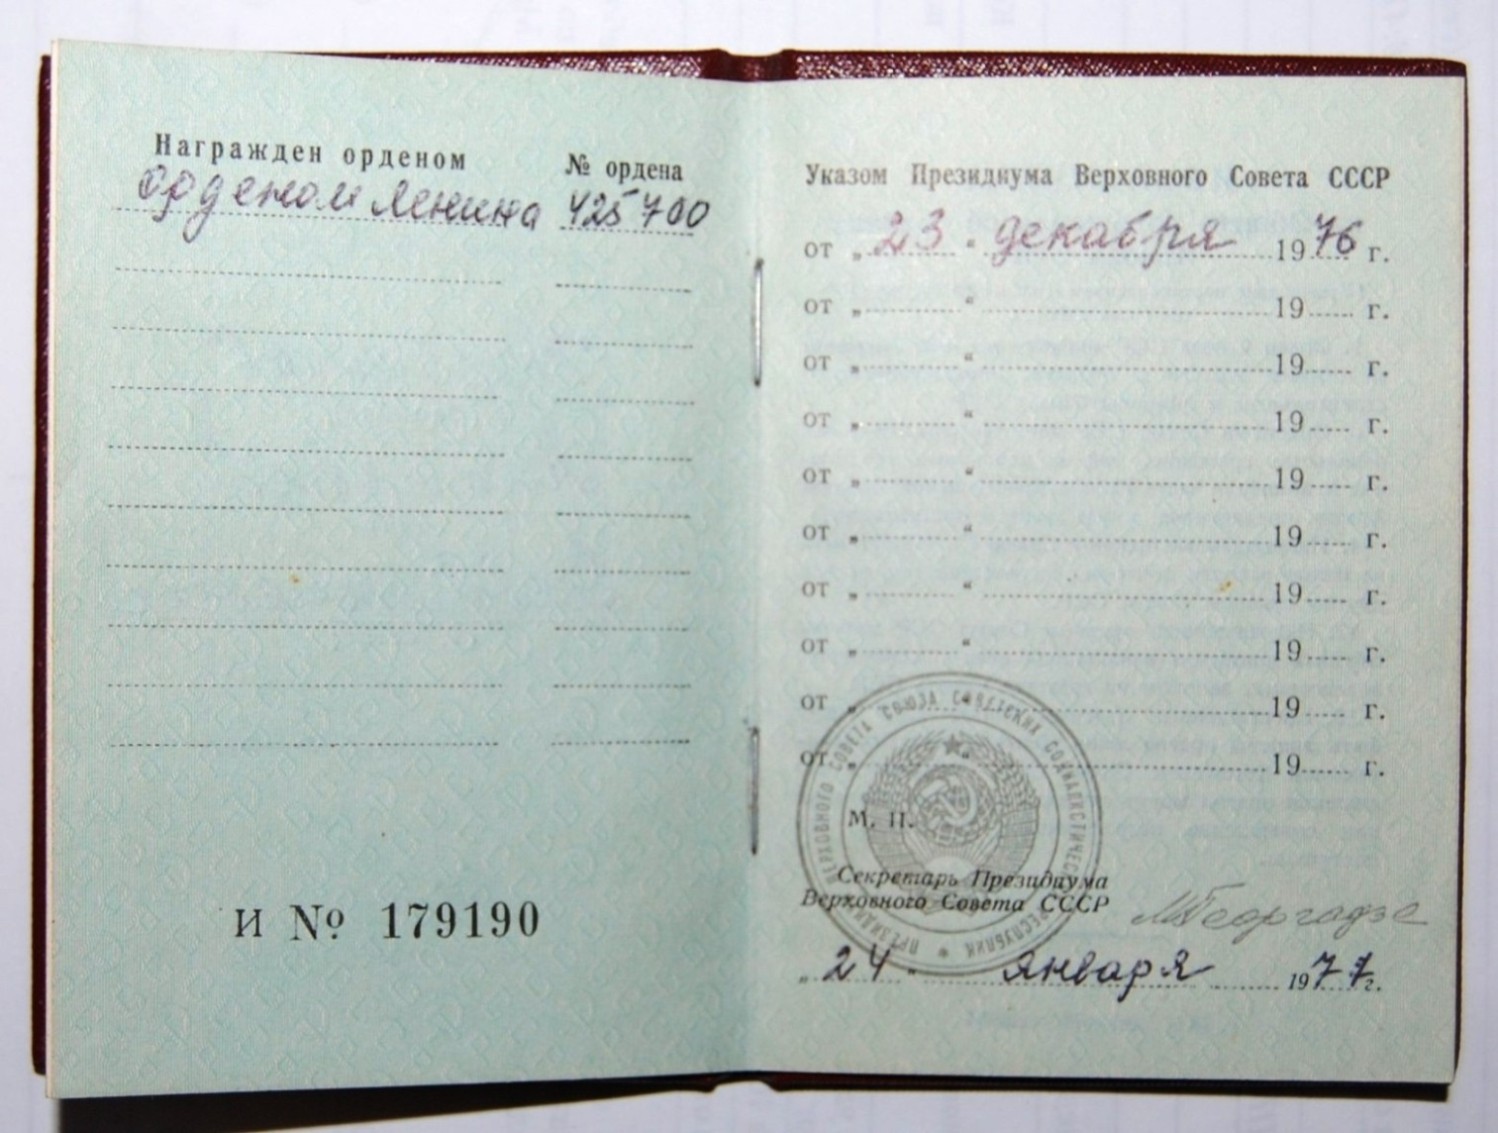 Награжден орденом № ордена
орденом Ленина 425700
И № 179190
Указом Президиума Верховного Совета СССР
от „23“ декабря 1976 г.
от „ “ 19 г.
от „ “ 19 г.
от „ “ 19 г.
от „ “ 19 г.
от „ “ 19 г.
от „ “ 19 г.
от „ “ 19 г.
от „ “ 19 г.
от „ “ 19 г.
ПРЕЗИДИУМ ВЕРХОВНОГО СОВЕТА СОЮЗА СОВЕТСКИХ СОЦИАЛИСТИЧЕСКИХ РЕСПУБЛИК
М. П.
Секретарь Президиума
Верховного Совета СССР МГеоргадзе
„24“ января 1977 г.